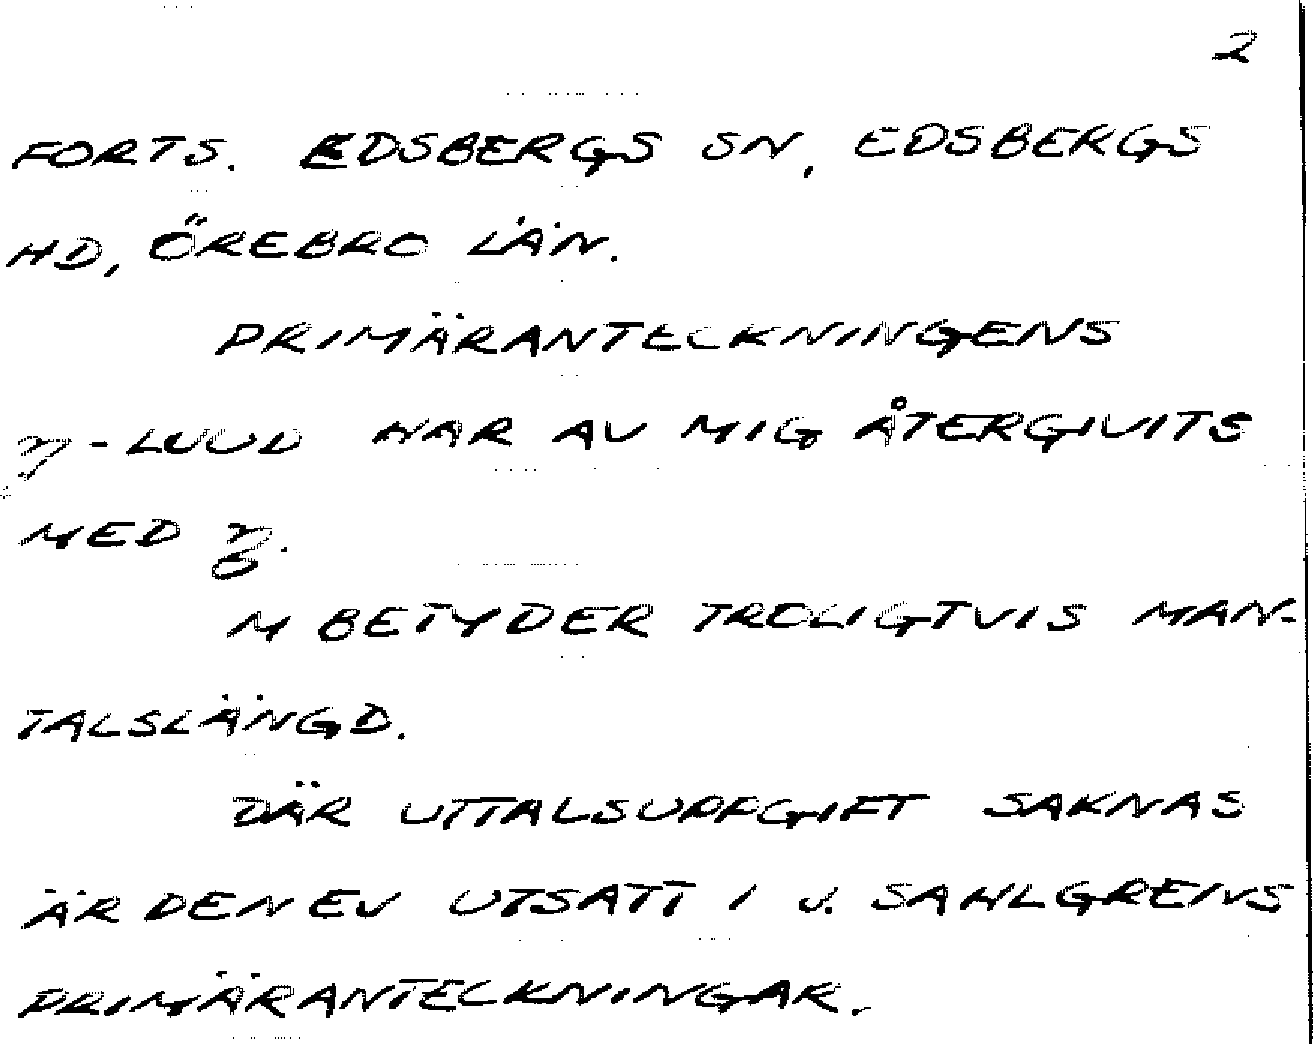 2
FORTS. EDSBERGS SN, EDSBERGS
HD, ÖREBRO LÄN.
PRIMÄRANTECKNINGENS
-LJUD HAR AV MIG ÅTERGIVITS
MED
M BETYDER TROLIGTVIS MAN-
TALSLÄNGD.
DÄR UTTALSUPPGIFT SAKNAS
ÄR DEN EJ UTSATT I J. SAHLGRENS
PRIMÄRANTECKNINGAR.